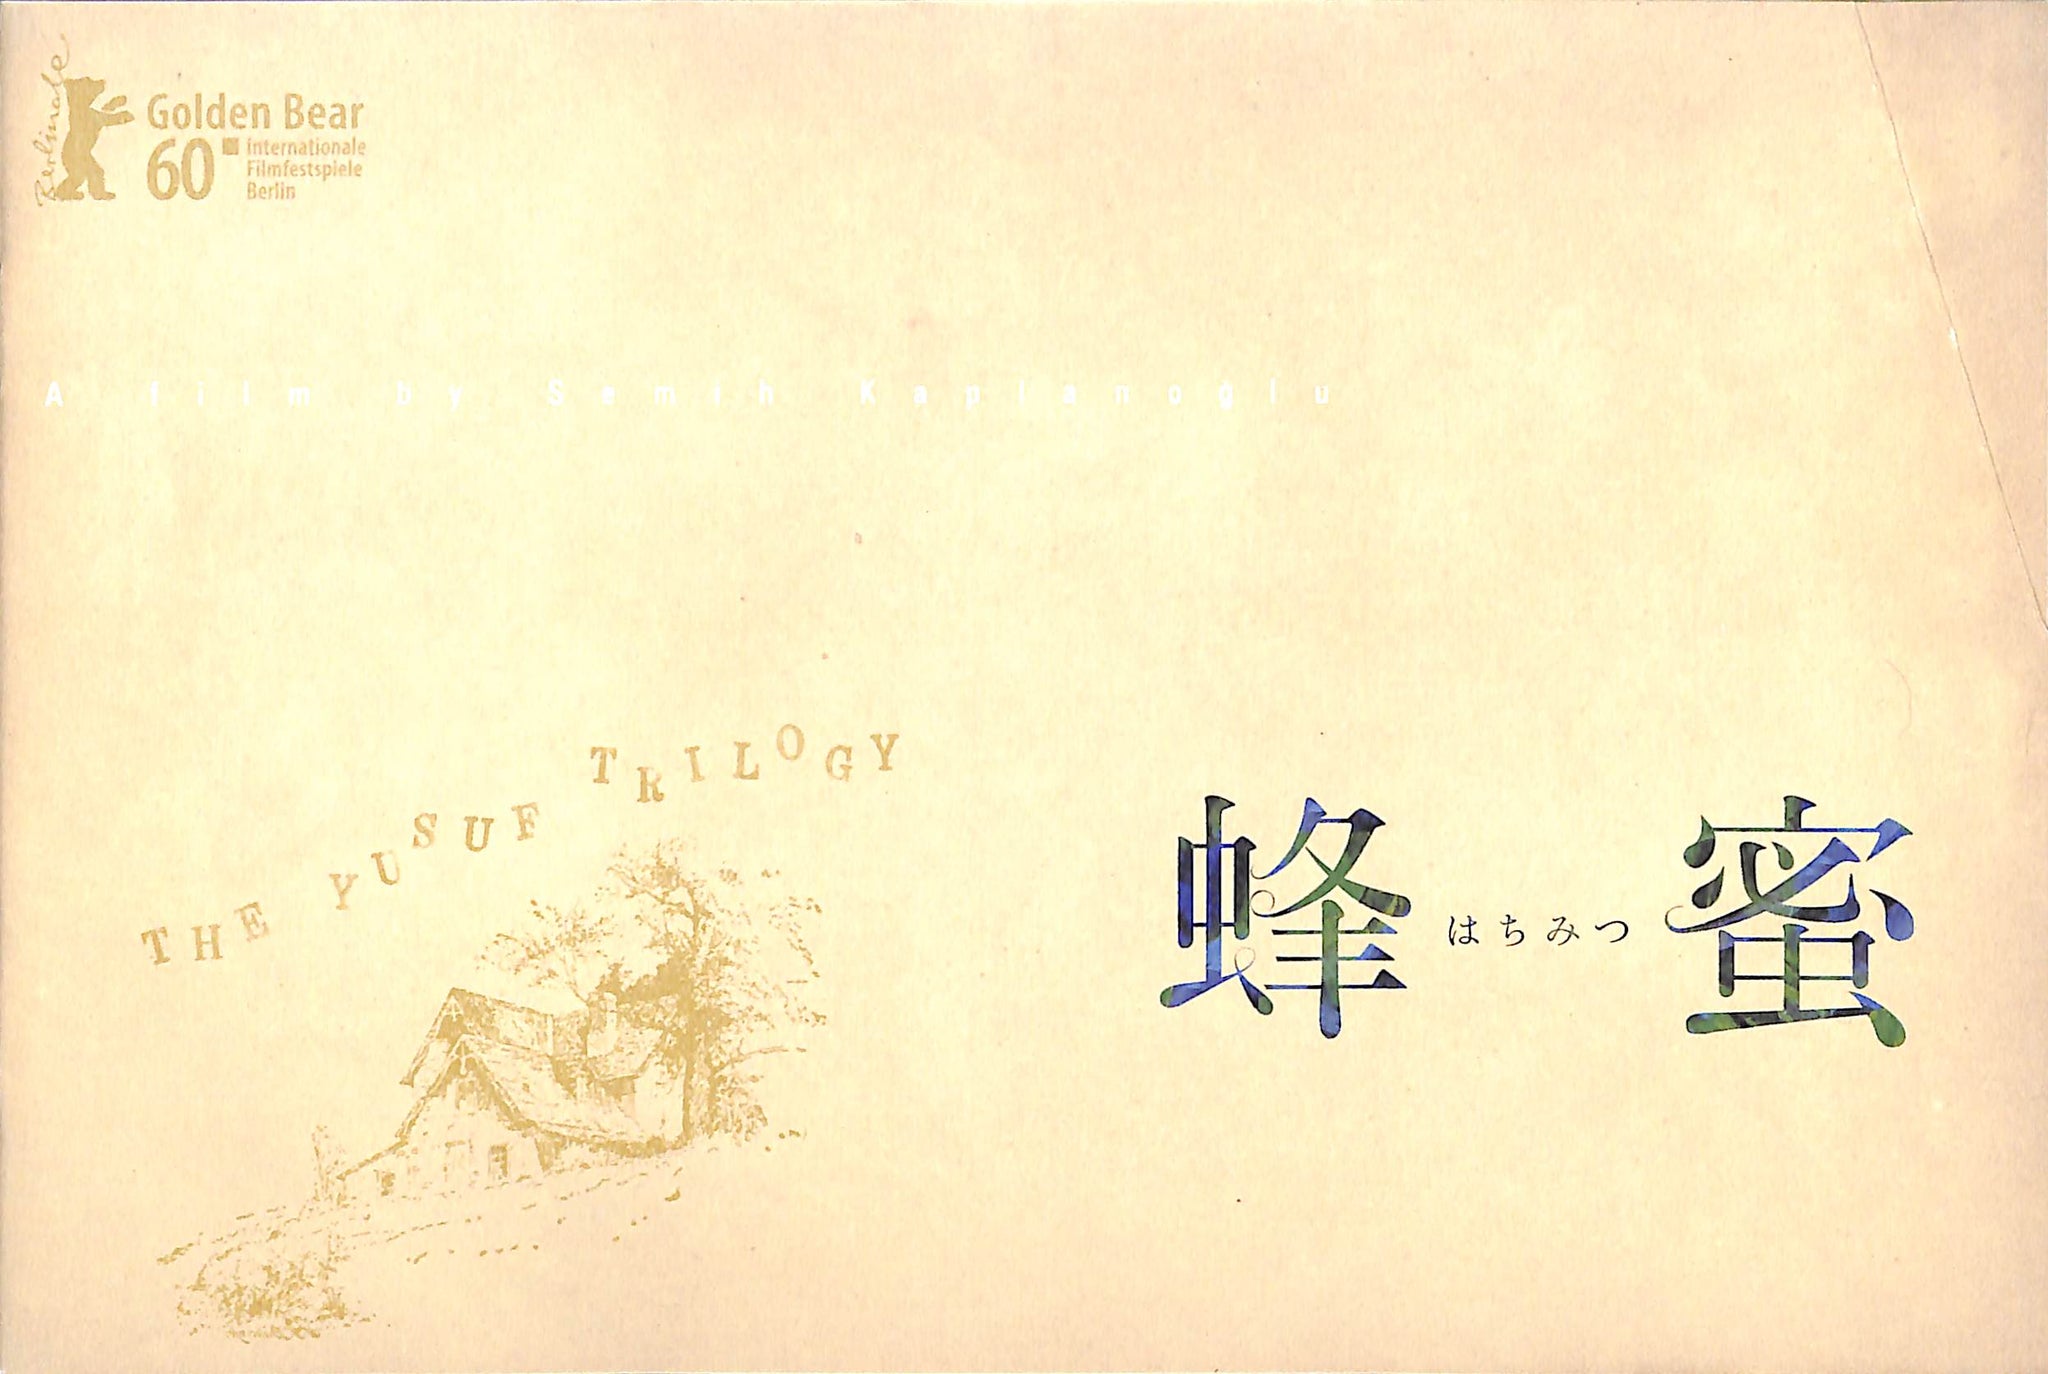 Berlinale
Golden Bear
60
Internationale
Filmfestspiele
Berlin
A film by Semih Kaplanoğlu
THE YUSUF TRILOGY
蜂 はちみつ 蜜